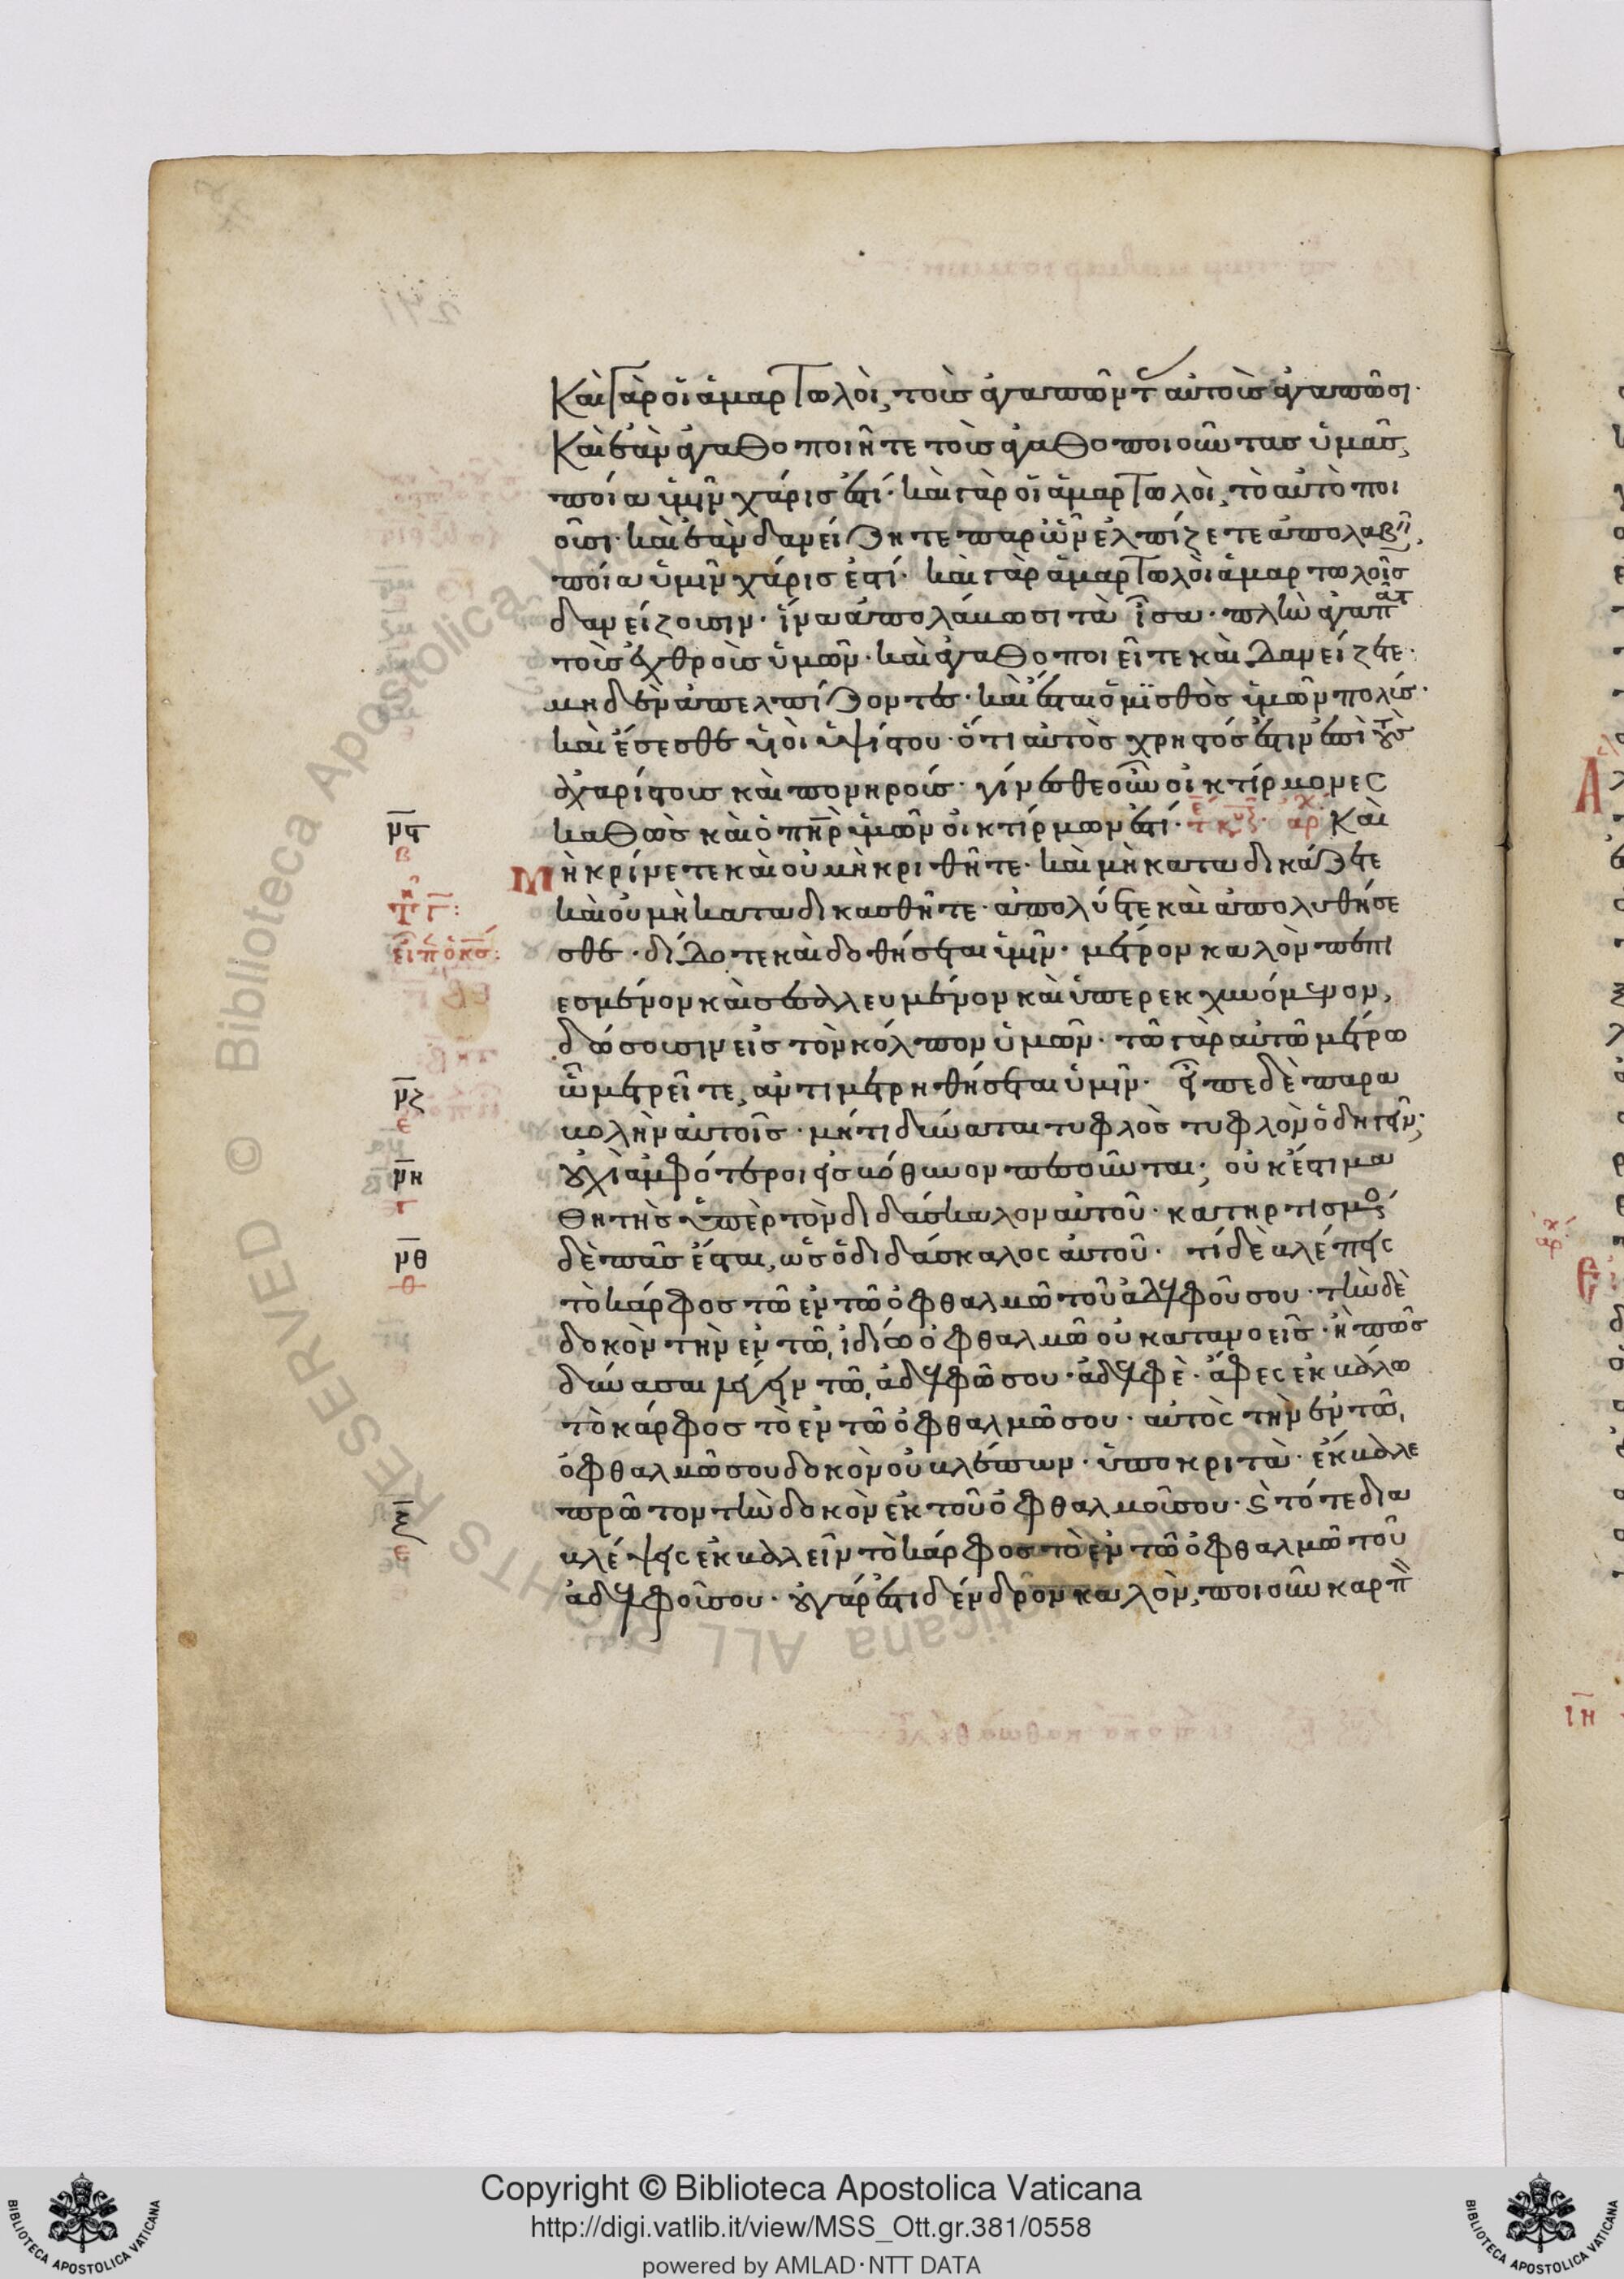 Καὶ γὰρ οἱ ἁμαρτωλοὶ, τοὺς ἀγαπῶντ αὐτοὺς ἀγαπῶσι·
Καὶ ἐὰν ἀγαθοποιῆτε τοὺς ἀγαθοποιοῦντας ὑμᾶς,
ποία ὑμῖν χάρις ἐστί· καὶ γὰρ οἱ ἁμαρτωλοὶ, τὸ αὐτὸ ποι
οῦσι· καὶ ἐὰν δανείζητε παρ ὧν ἐλπίζετε ἀπολαβῆ,
ποία ὑμῖν χάρις ἐστί· καὶ γὰρ ἁμαρτωλὸι ἁμαρτωλοῖς
δανείζουσιν· ἵνα ἀπολάβωσι τὰ ἶσα· πλὴν ἀγαπᾶτ
τοὺς ἐχθροὺς ὑμῶν· καὶ ἀγαθοποιεῖτε καὶ δανείζετε·
μηδὲν ἀπελπίζοντες· καὶ ἔσται ὁ μϊσθὸς ὑμῶν πολύς·
καὶ ἔσεσθε υἱοὶ ὑψίστου· ὅτι αὐτὸς χρηστός ἐστιν ἐπὶ τοὺς
ἀχαρίστους καὶ πονηρούς· γίνεσθε οὖν οἰκτίρμονες
καθὼς καὶ ὁ πηρ ὑμῶν οἰκτίρμων ἐστί· ἀρχ Καὶ
Μὴ κρίνετε καὶ οὐ μὴ κριθῆτε· καὶ μὴ καταδικάζετε
καὶ οὐ μὴ καταδικασθῆτε· ἀπολύετε καὶ ἀπολυθήσε
σθε· δίδοτε καὶ δοθήσεται ὑμῖν· μέτρον καλὸν πεπι
εσμένον καὶ σεσαλευμένον καὶ ὑπερεκχυνόμενον,
δώσουσιν εἰς τὸν κόλπον ὑμῶν· τῶ γὰρ αὐτῶ μέτρω
ὧ μετρεῖτε, ἀντιμετρηθήσεται ὑμῖν· εἶπε δὲ παρα
βολὴν αὐτοῖς· μήτι δύναται τυφλὸς τυφλὸν ὁδηγεῖν;
οὐχὶ ἀμφότεροι εἰς βόθυνον πεσοῦνται; οὐκ ἔστι μα
θητὴς ὑπὲρ τὸν διδάσκαλον αὐτοῦ· κατηρτισμένος
δὲ πᾶς ἔσται, ὡς ὁ διδάσκαλος αὐτοῦ· τί δὲ βλέπεις
τὸ κάρφος τῶ ἐν τῶ ὀφθαλμῶ τοῦ ἀδελφοῦ σου· τὴν δὲ
δοκὸν τὴν ἐν τῶ, ἰδίω ὀφθαλμῶ οὐ κατανοεῖς· ἢ πῶς
δύνασαι λέγειν τῶ, ἀδελφῶ σου· ἀδελφὲ· ἄφες ἐκβάλω
τὸ κάρφος τὸ ἐν τῶ ὀφθαλμῶ σου· αὐτὸς τὴν ἐν τῶ,
ὀφθαλμῶ σου δοκὸν οὐ βλέπων· ὑποκριτὰ· ἔκβαλε
πρῶτον τὴν δοκὸν ἐκ τοῦ ὀφθαλμοῦ σου· ϗ τότε δια
βλέψεις ἐκβαλεῖν τὸ κάρφος τὸ ἐν τῶ ὀφθαλμῶ τοῦ
ἀδελφοῦ σου· οὐ γάρ ἐστι δένδρον καλὸν, ποιοῦν καρπ
μϛ
β
μζ
ε
μη
γ
μθ
ξ
ιη
Copyright © Biblioteca Apostolica Vaticana
http://digi.vatlib.it/view/MSS_Ott.gr.381/0558
powered by AMLAD·NTT DATA
BIBLIOTECA APOSTOLICA VATICANA
BIBLIOTECA APOSTOLICA VATICANA